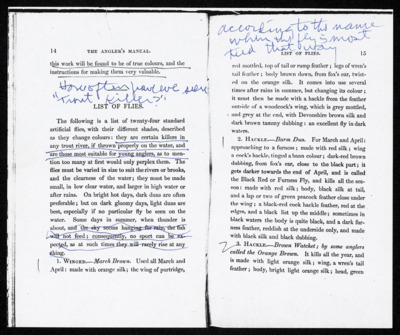 14 THE ANGLER'S MANUAL
this work will be found to be of true colours, and the
instructions for making them very valuable.
How often have we seen
"Trout Killers"?
LIST OF FLIES.
The following is a list of twenty-four standard
artificial flies, with their different shades, described
as they change colours: they are certain killers in
any trout river, if thrown properly on the water, and
are those most suitable for young anglers, as to men-
tion too many at first would only perplex them. The
flies must be varied in size to suit the rivers or brooks,
and the clearness of the water; they must be made
small, in low clear water, and larger in high water or
after rains. On bright hot days, dark duns are often
preferable; but on dark gloomy days, light duns are
best, especially if no particular fly be seen on the
water. Some days in summer, when thunder is
about, and the sky seems hanging for rain, the fish
will not feed; consequently, no sport can be ex-
pected, as at such times they will rarely rise at any
thing.
1. WINGED.—March Brown. Used all March and
April: made with orange silk; the wing of partridge,
according to the name
tied that way
LIST OF FLIES. 15
red mottled, top of tail or rump feather; legs of wren's
tail feather; body brown down, from fox's ear, twist-
ed on the orange silk. It comes into use several
times after rains in summer, but changing its colour;
it must then be made with a hackle from the feather
outside of a woodcock's wing, which is grey mottled,
and grey at the end, with Devonshire brown silk and
dark brown tammy dubbing: an excellent fly in dark
waters.
2. HACKLE.—Dark Dun. For March and April:
approaching to a furnace; made with red silk; wing
a cock's hackle, tinged a bunn colour; dark-red brown
dubbing, from fox's ear, close to the black part; it
gets darker towards the end of April, and is called
the Black Red or Furness Fly, and kills all the sea-
son: made with red silk; body, black silk at tail,
and a lap or two of green peacock feather close under
the wing; a black-red cock hackle feather, red at the
edges, and a black list up the middle; sometimes in
black waters the body is quite black, and a dark fur-
ness feather, reddish at the underside only, and made
with black silk and black dubbing.
3. HACKLE.—Brown Watchet; by some anglers
called the Orange Brown. It kills all the year, and
is made with light orange silk; wing, a wren's tail
feather; body, bright light orange silk; head, green